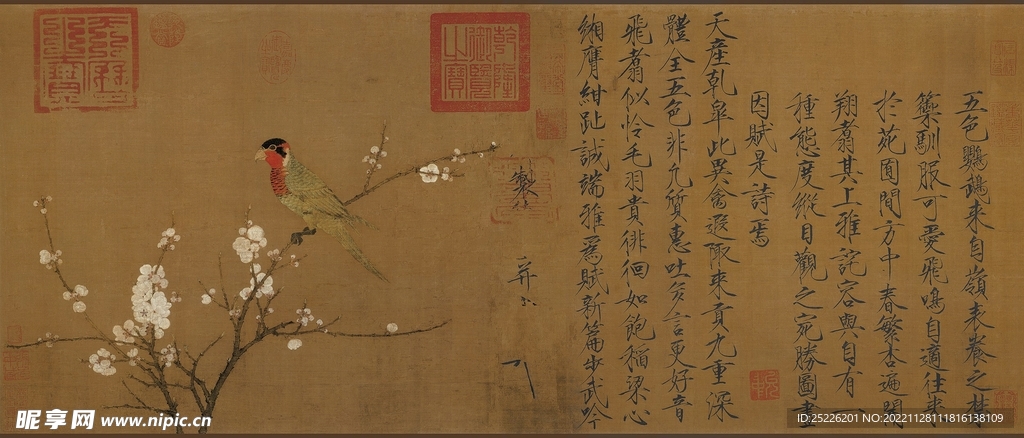 五色鸚鵡來自嶺表養之禁
籞馴服可愛飛鳴自適往來
於苑囿間方中春繁杏遍開
翔翥其上雅詫容與自有一
種態度縱目觀之宛勝圖畫
因賦是詩焉
天產乾皋此異禽遐陬來貢九重深
體全五色非凡質惠吐多言更好音
飛翥似憐毛羽貴徘徊如飽稻粱心
緗膺紺趾誠端雅為賦新篇步武吟
製
并
乾隆御覽之寶
昵享网 www.nipic.cn
ID:25226201 NO:20221128111816138109